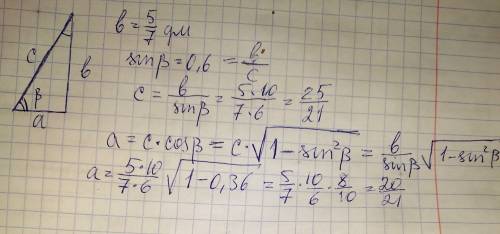 b = 5/7 дм
sinβ = 0,6 = b/c
c = b/sinβ = 5·10/7·6 = 25/21
a = c·cosβ = c·√1-sin²β = b/sinβ √1-sin²β
a = 5·10/7·6 √1-0,36 = 5/7·10/6·8/10 = 20/21
c
b
β
a